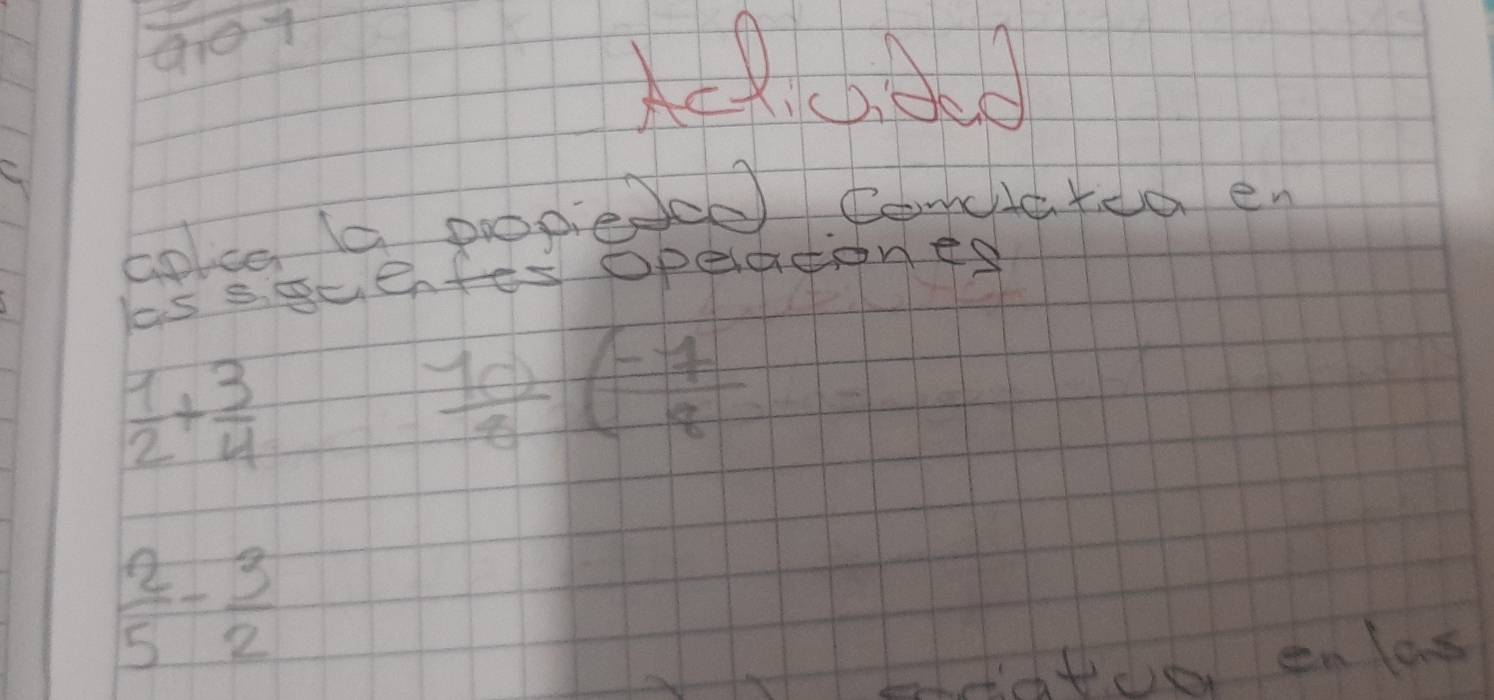 Actividad
aplica la propiedad comutativa en
las siguientes operaciones
1/2 + 3/4 10/8 (-7/8
2/5 - 3/2
en las